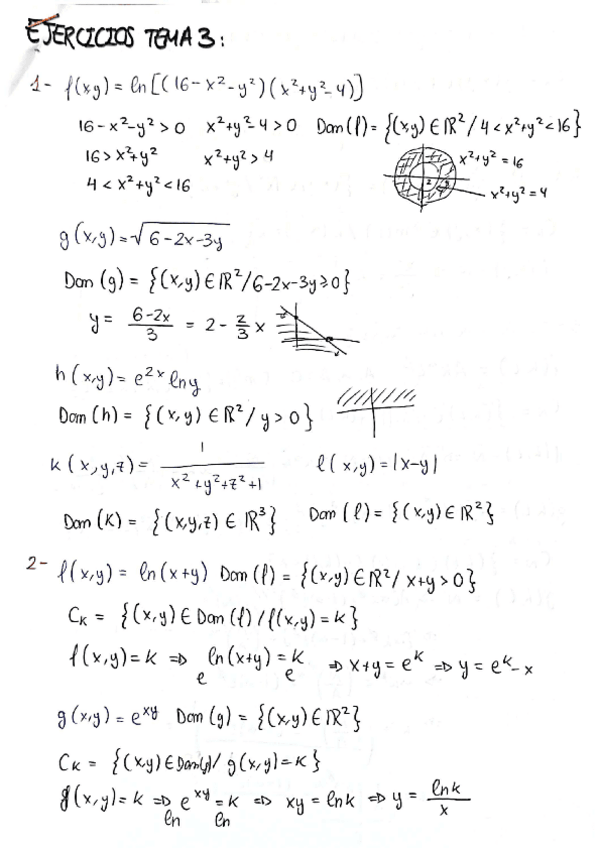 EJERCICIOS TEMA 3:
1- f(x,y) = ln[(16-x²-y²)(x²+y²-4)]
16-x²-y² > 0 x²+y²-4 > 0 Dom(f) = {(x,y) ∈ ℝ² / 4 < x²+y² < 16}
16 > x²+y² x²+y² > 4 x²+y² = 16
4 < x²+y² < 16 x²+y² = 4
g(x,y) = √(6-2x-3y)
Dom(g) = {(x,y) ∈ ℝ² / 6-2x-3y ≥ 0}
y = (6-2x)/3 = 2 - 2/3 x
h(x,y) = e^(2x) ln y
Dom(h) = {(x,y) ∈ ℝ² / y > 0}
k(x,y,z) = 1/(x²+y²+z²+1) l(x,y) = |x-y|
Dom(k) = {(x,y,z) ∈ ℝ³} Dom(l) = {(x,y) ∈ ℝ²}
2- f(x,y) = ln(x+y) Dom(f) = {(x,y) ∈ ℝ² / x+y > 0}
Cₖ = {(x,y) ∈ Dom(f) / f(x,y) = k}
f(x,y) = k ⇒ e^(ln(x+y)) = e^k ⇒ x+y = e^k ⇒ y = e^k - x
g(x,y) = e^(xy) Dom(g) = {(x,y) ∈ ℝ²}
Cₖ = {(x,y) ∈ Dom(g) / g(x,y) = k}
g(x,y) = k ⇒ ln e^(xy) = ln k ⇒ xy = ln k ⇒ y = (ln k)/x